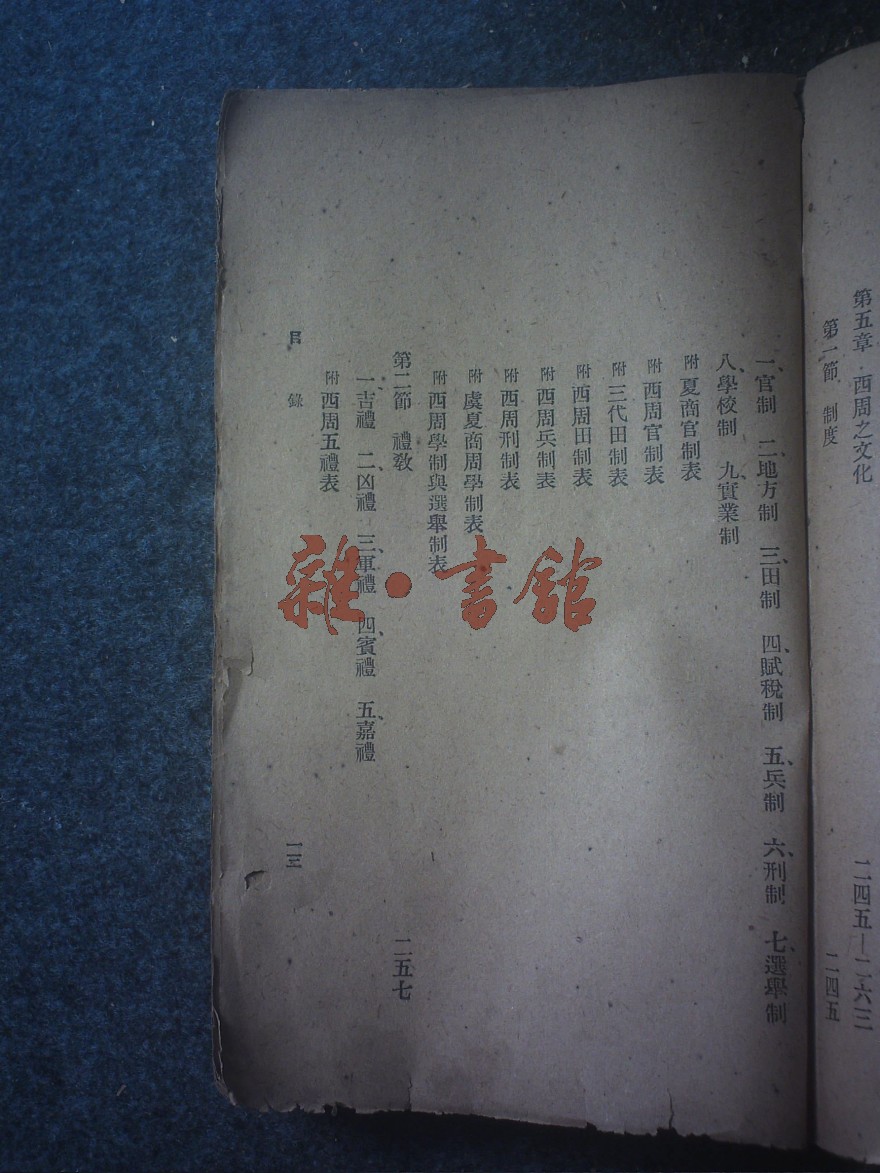 第五章 西周之文化 二四五—二六三
第一節 制度 二四五
一、官制 二、地方制 三、田制 四、賦稅制 五、兵制 六、刑制 七、選舉制
八、學校制 九、實業制
附 夏商官制表
附 西周官制表
附 三代田制表
附 西周田制表
附 西周兵制表
附 西周刑制表
附 虞夏商周學制表
附 西周學制與選舉制表
第二節 禮教 二五七
一、吉禮 二、凶禮 三、軍禮 四、賓禮 五、嘉禮
附 西周五禮表
目錄 一三
雜·書館